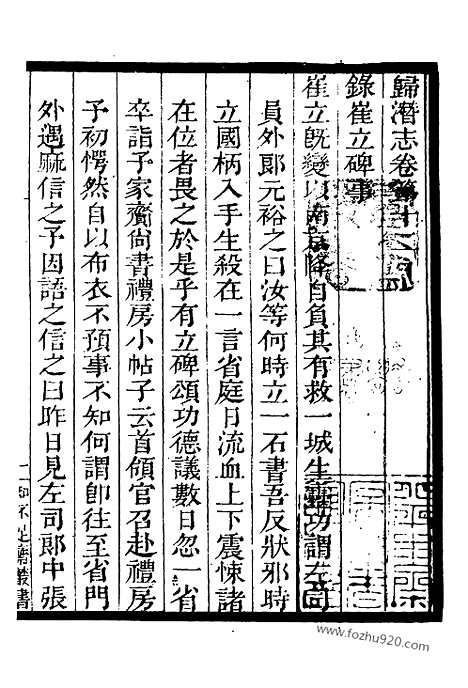 歸潛志卷第十二
錄崔立碑事
崔立旣變以南京降自負其有救一城生靈功謂左司
員外郎元裕之曰汝等何時立一石書吾反狀邪時
立國柄入手生殺在一言省庭日流血上下震悚諸
在位者畏之於是乎有立碑頌功德議數日忽一省
卒詣予家齎尚書禮房小帖子云首領官召赴禮房
予初愕然自以布衣不預事不知何謂卽往至省門
外遇麻信之予因語之信之曰昨日見左司郎中張
知不足齋叢書
www.fozhu920.com